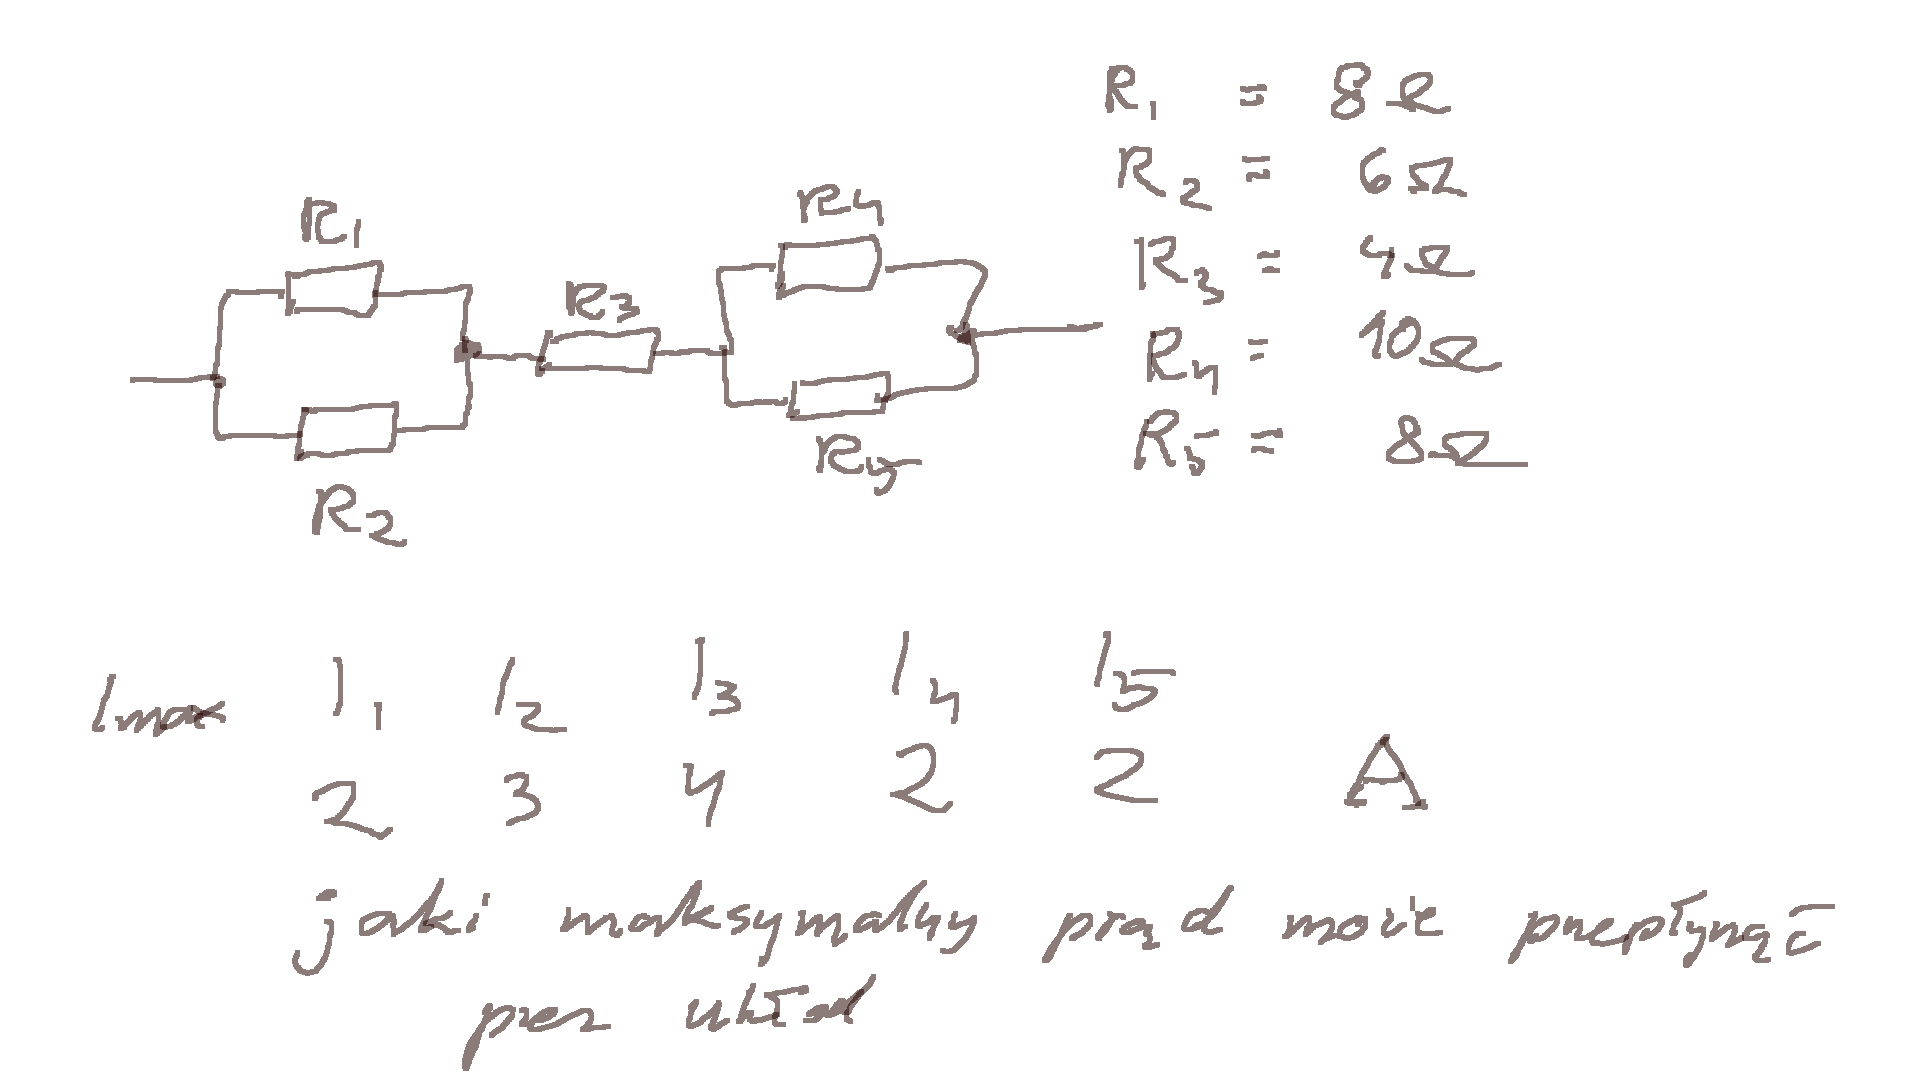 R1 = 8Ω
R2 = 6Ω
R3 = 4Ω
R4 = 10Ω
R5 = 8Ω
R1
R2
R3
R4
R5
Imax I1 I2 I3 I4 I5
2 3 4 2 2 A
jaki maksymalny prąd może przepłynąć
przez układ